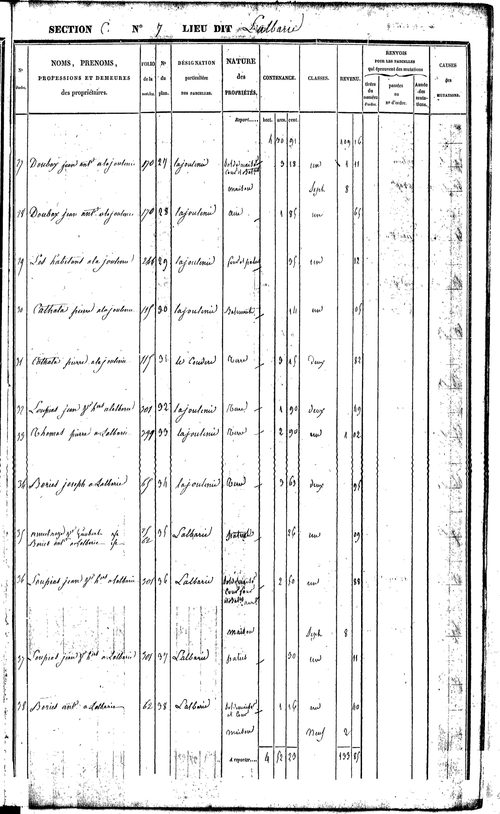 SECTION C. N° 7 LIEU DIT Lalbarie
N° d'ordre.
NOMS, PRENOMS,
PROFESSIONS ET DEMEURES
des propriétaires.
FOLIO de la matrice.
N° du plan.
DÉSIGNATION
particulière
DES PARCELLES.
NATURE
des
PROPRIÉTÉS.
CONTENANCE.
CLASSES.
REVENU.
RENVOIS
POUR LES PARCELLES
qui éprouvent des mutations
tirées du numéro d'ordre.
passées au N° d'ordre.
Année des mutations.
CAUSES
des
MUTATIONS.
Report.... hect. ares. cent.
4 30 91 119 16
27 Doubax jean ant. a lajoulinie 170 27 lajoulinie 3 18 un 1 11
maison Sept 8
28 Doubax jean ant. a lajoulinie 170 28 lajoulinie 1 85 un 65
29 Les habitans a la joulinie 29 lajoulinie 35 un 12
30 Cathala pierre a lajoulinie 115 30 lajoulinie 14 un 05
31 Cathala pierre a lajoulinie 115 31 le Couderc 3 45 deux 82
32 Loupias jean a lalbarie 301 32 lajoulinie 1 90 deux 49
33 Thomas pierre a lalbarie 399 33 lajoulinie 2 90 un 1 02
34 Bories joseph a Lalbarie 65 34 lajoulinie 3 63 deux 95
35 Bories ant. a Lalbarie 62 35 Lalbarie 26 un 09
36 Loupias jean a lalbarie 301 36 Lalbarie 2 50 un 88
maison Sept 8
37 Loupias jean a Lalbarie 301 37 Lalbarie patus 30 un 11
38 Bories ant. a Lalbarie 62 38 Lalbarie 1 16 un 40
maison Neuf 2
A reporter.... 4 52 23 133 85